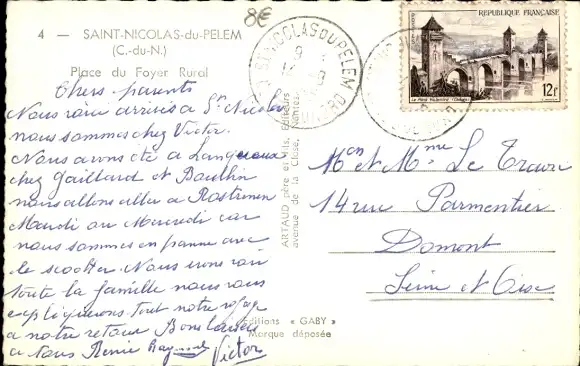 8€
4 — SAINT-NICOLAS-du-PELEM
(C.-du-N.)
Place du Foyer Rural
Chers parents
Nous arrivés à St Nicolas
nous sommes chez Victor.
Nous avons été a
chez Gaillard et
nous allons aller a Rostrenen
Mardi ou Mercredi car
nous sommes en panne avec
le scooter. Nous irons voir
toute la famille nous vous
expliquerons tout notre voyage
a notre retour Bons baisers
a tous Renée Raymond Victor
ARTAUD père et fils, Editeurs
avenue de la Close, Nantes
Editions « GABY »
Marque déposée
ST NICOLAS DU PELEM
REPUBLIQUE FRANÇAISE
12f
Le Pont Valentré (Cahors)
Mon et Mme Le
14 rue Parmentier
Domont
Seine et Oise